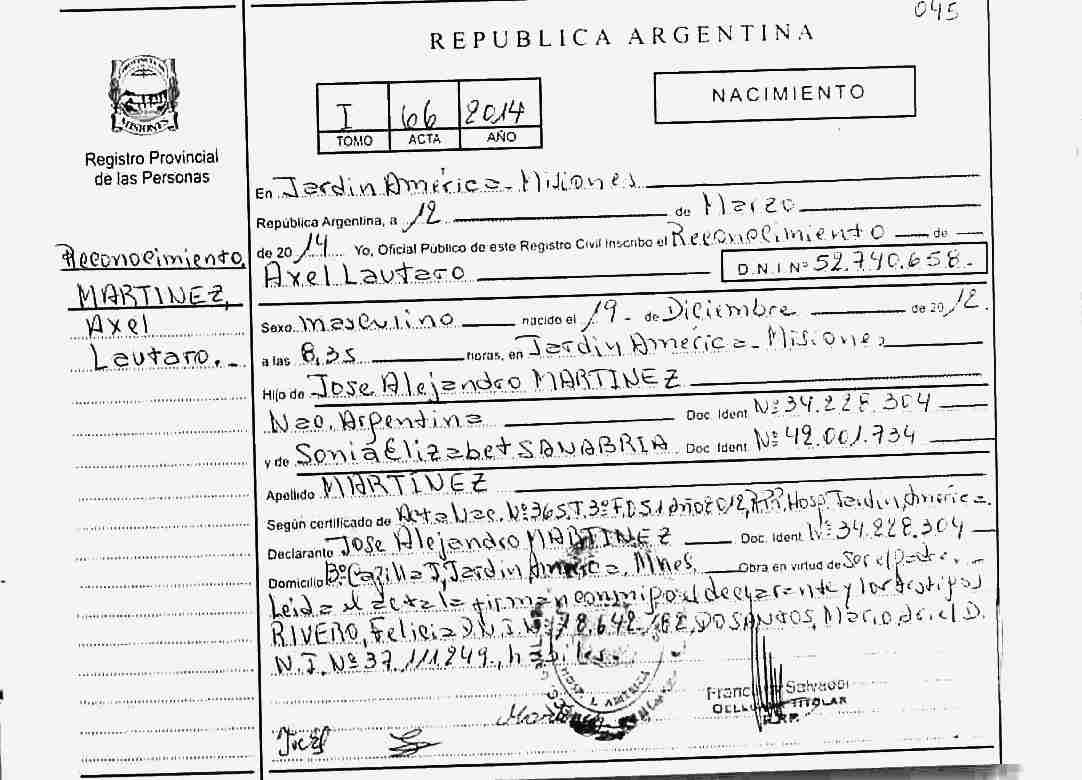 045
REPUBLICA ARGENTINA
NACIMIENTO
I 66 2014
TOMO ACTA AÑO
MISIONES
Registro Provincial
de las Personas
Reconocimiento
MARTINEZ,
Axel
Lautaro.-
En Jardin América - Misiones
República Argentina, a 12 de Marzo
de 2014 Yo, Oficial Público de este Registro Civil Inscribo el Reconocimiento de
Axel Lautaro D.N.I Nº 52.740.658.-
Sexo masculino nacido el 19 - de Diciembre de 2012.
a las 8,35 horas, en Jardin América - Misiones
Hijo de Jose Alejandro MARTINEZ
Nac. Argentina Doc Ident Nº 34.228.304
y de Sonia Elizabet SANABRIA Doc Ident Nº 42.001.734
Apellido MARTINEZ
Según certificado de Acta Nac. Nº 365, T.3º F.D.S.1 año 2012, Hosp. Jardin América.
Declarante Jose Alejandro MARTINEZ Doc. Ident Nº 34.228.304
Domicilio Bº Jardin América, Mnes, Obra en virtud de Ser el padre.-
Leida el acta la firman conmigo el declarante y los testigos
RIVERO, Felicia D.N.I. Nº DOSANTOS, Mario D.
N.I. Nº 37.111.249, habiles.
Salvador
TITULAR